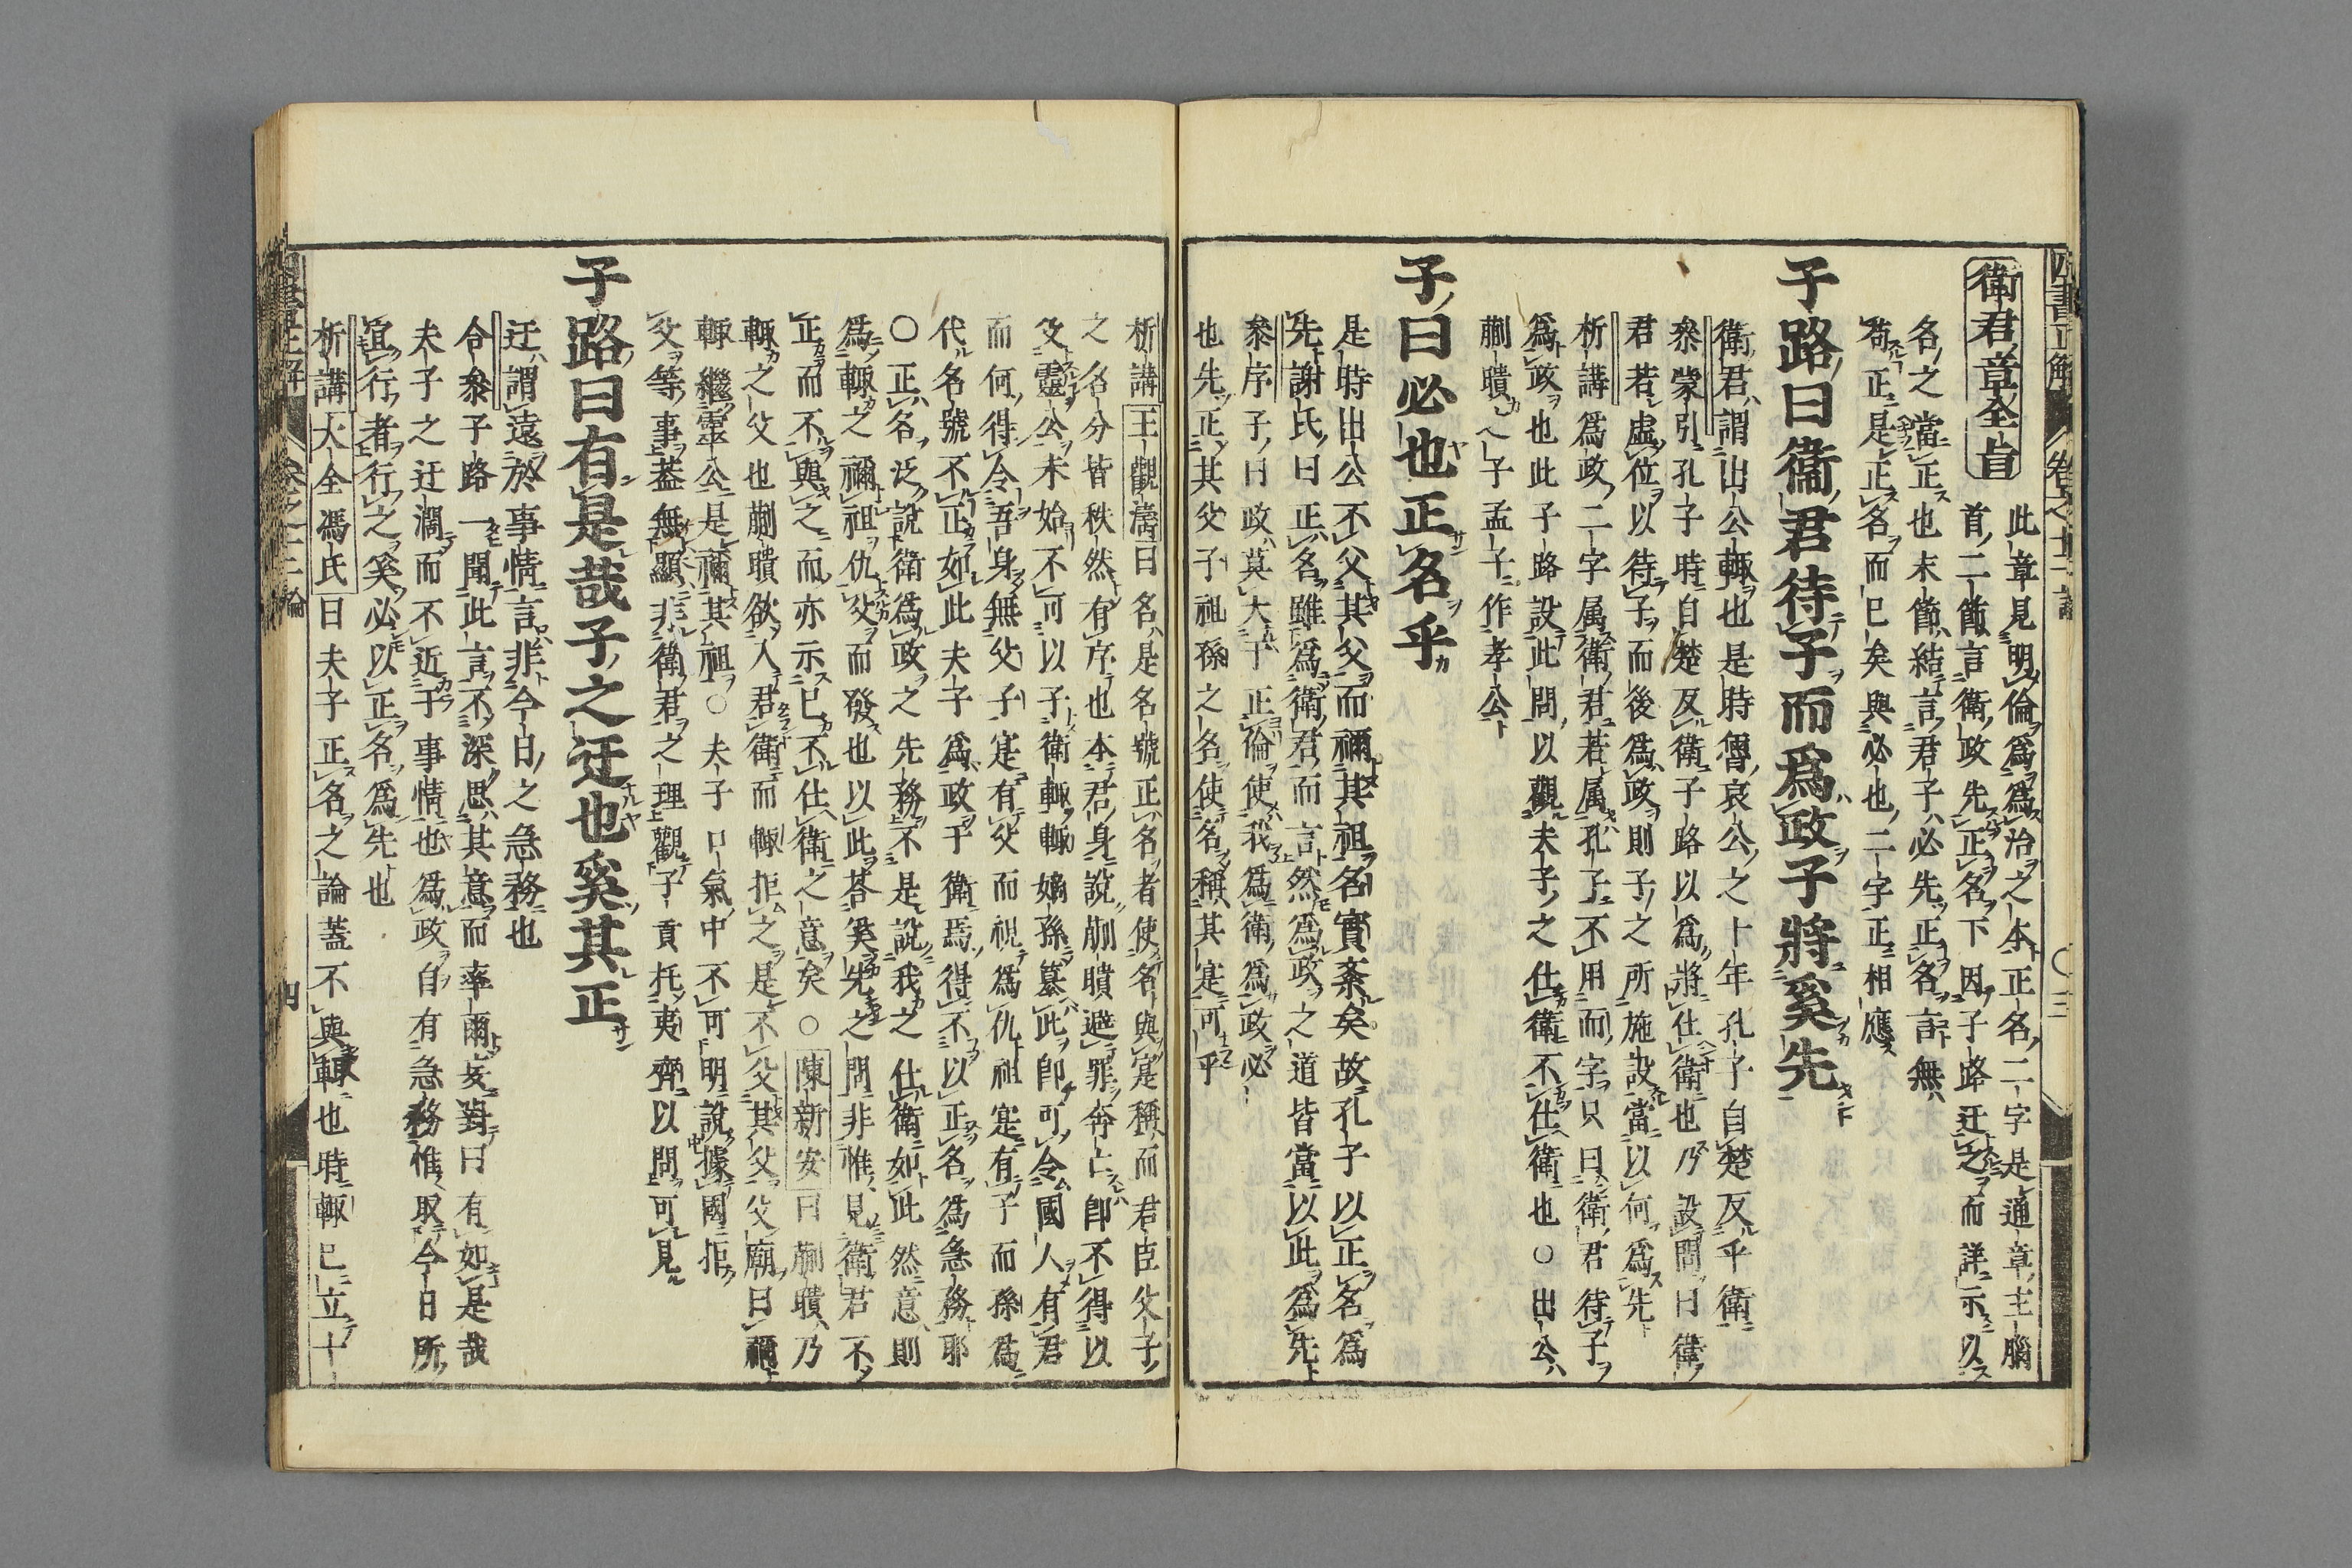 四書正解 卷之十二 論 ○三
衛君章全旨
此章見明倫爲爲治之本正名二字是通章主腦
首二節言衛政先正名下因子路迂之而詳示以
名之當正也末節結言君子必先正名言無
苟正是正名而已矣與必也二字正相應
子路曰衞君待子而爲政子將奚先
衛君謂出公輒也是時魯哀公之十年孔子自楚反乎衛
叅蒙引孔子時自楚反衛子路以爲將仕衛也乃設問曰衛
君若虛位以待子而後爲政則子之所施設當以何爲先
析講爲政二字属衛君若属孔子不用而字只曰衛君待子
爲政也此子路設此問以觀夫子之仕衛不仕衛也○出公
蒯聵之子孟子作孝公
子曰必也正名乎
是時出公不父其父而禰其祖名實紊矣故孔子以正名爲
先謝氏曰正名雖爲衛君而言然爲政之道皆當以此爲先
叅序子曰政莫大于正倫使我爲衛爲政必
也先正其父子祖孫之名使名稱其寔可乎
析講王觀濤曰名是名號正名者使名與寔稱而君臣父子
之名分皆秩然有序也本君身說蒯聵避罪奔亡卽不得以
父靈公未始不可以子衛輒輒嫡孫墓此卽可令國人有君
而何得令吾身無父子寔有父而視爲仇祖寔有子而孫爲
代名號不正如此夫子爲政于衛焉得不以正名爲急務耶
○正名泛說衛爲政之先務不是說我之仕衛如此然意則
爲輒之禰祖仇父而發也以此荅奚先之問非惟見衛君不
正而不與之而亦示已不仕衛之意矣○陳新安曰蒯聵乃
輒之父也蒯聵欲入君衛而輒拒之是不父其父父廟曰禰
輒繼靈公是禰其祖○夫子口氣中不可明說據國拒
父等事葢無顯非衛君之理觀子貢托夷齊以問可見
子路曰有是哉子之迂也奚其正
迂謂遠於事情言非今日之急務也
合叅子路一聞此言不深思其意而率爾妄對曰有如是哉
夫子之迂濶而不近于事情也爲政自有急務惟取今日所
宜行者行之奚必以正名爲先也
析講大全馮氏曰夫子正名之論蓋不與輒也時輒已立十
四書正解 卷之十二 論 四